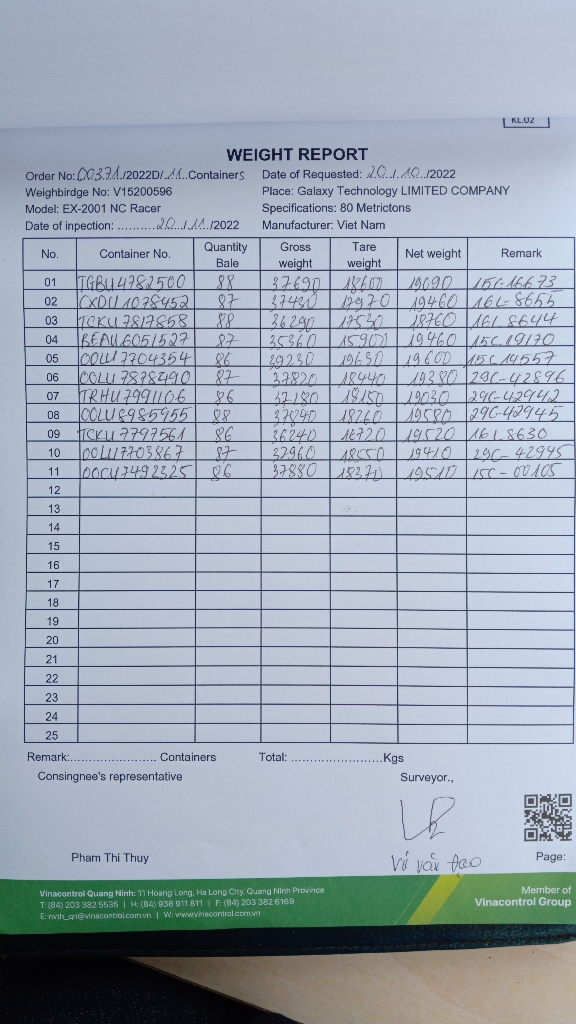 KL.02
WEIGHT REPORT
Order No: 00371/2022D/ 11 Containers Date of Requested: 20/10/2022
Weighbirdge No: V15200596 Place: Galaxy Technology LIMITED COMPANY
Model: EX-2001 NC Racer Specifications: 80 Metrictons
Date of inpection: ..........20/11/2022 Manufacturer: Viet Nam
No. Container No. Quantity Bale Gross weight Tare weight Net weight Remark
01 TGBU4782500 88 37690 18600 19090 15C-16673
02 CXDU1078452 87 37430 17970 19460 16L-8655
03 TCKU7817858 88 36290 17530 18760 16L8644
04 BEAU6051527 87 35360 15900 19460 15C19170
05 OOLU7704354 86 39230 19630 19600 15C14557
06 OOLU7878490 87 37820 18440 19380 29C-42896
07 TRHU7991106 86 37180 18150 19030 29C-42942
08 OOLU8985955 88 37840 18260 19580 29C-42945
09 TCKU7797561 86 36240 16720 19520 16L8630
10 OOLU7703867 87 37960 18550 19410 29C-42945
11 OOCU7492325 86 37880 18370 19510 15C-00105
12
13
14
15
16
17
18
19
20
21
22
23
24
25
Remark:...................... Containers Total: .......................Kgs
Consingnee's representative Surveyor.,
Pham Thi Thuy Vũ Văn Đạo Page:
Vinacontrol Quang Ninh: 11 Hoang Long, Ha Long City, Quang Ninh Province
T: (84) 203 382 5535 | H: (84) 936 911 811 | F: (84) 203 382 6169
E: nvth_qn@vinacontrol.com.vn | W: www.vinacontrol.com.vn
Member of
Vinacontrol Group